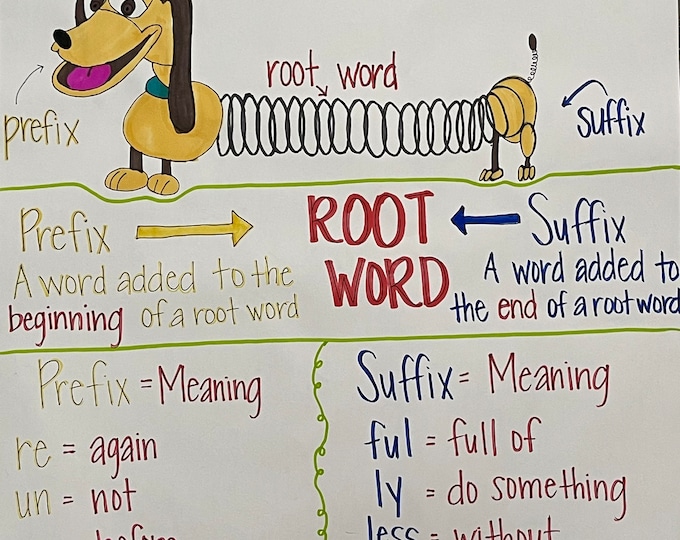 root word
prefix
suffix
Prefix
A word added to the
beginning of a root word
ROOT
WORD
Suffix
A word added to
the end of a root word
Prefix = Meaning
re = again
un = not
before
Suffix = Meaning
ful = full of
ly = do something
less = without